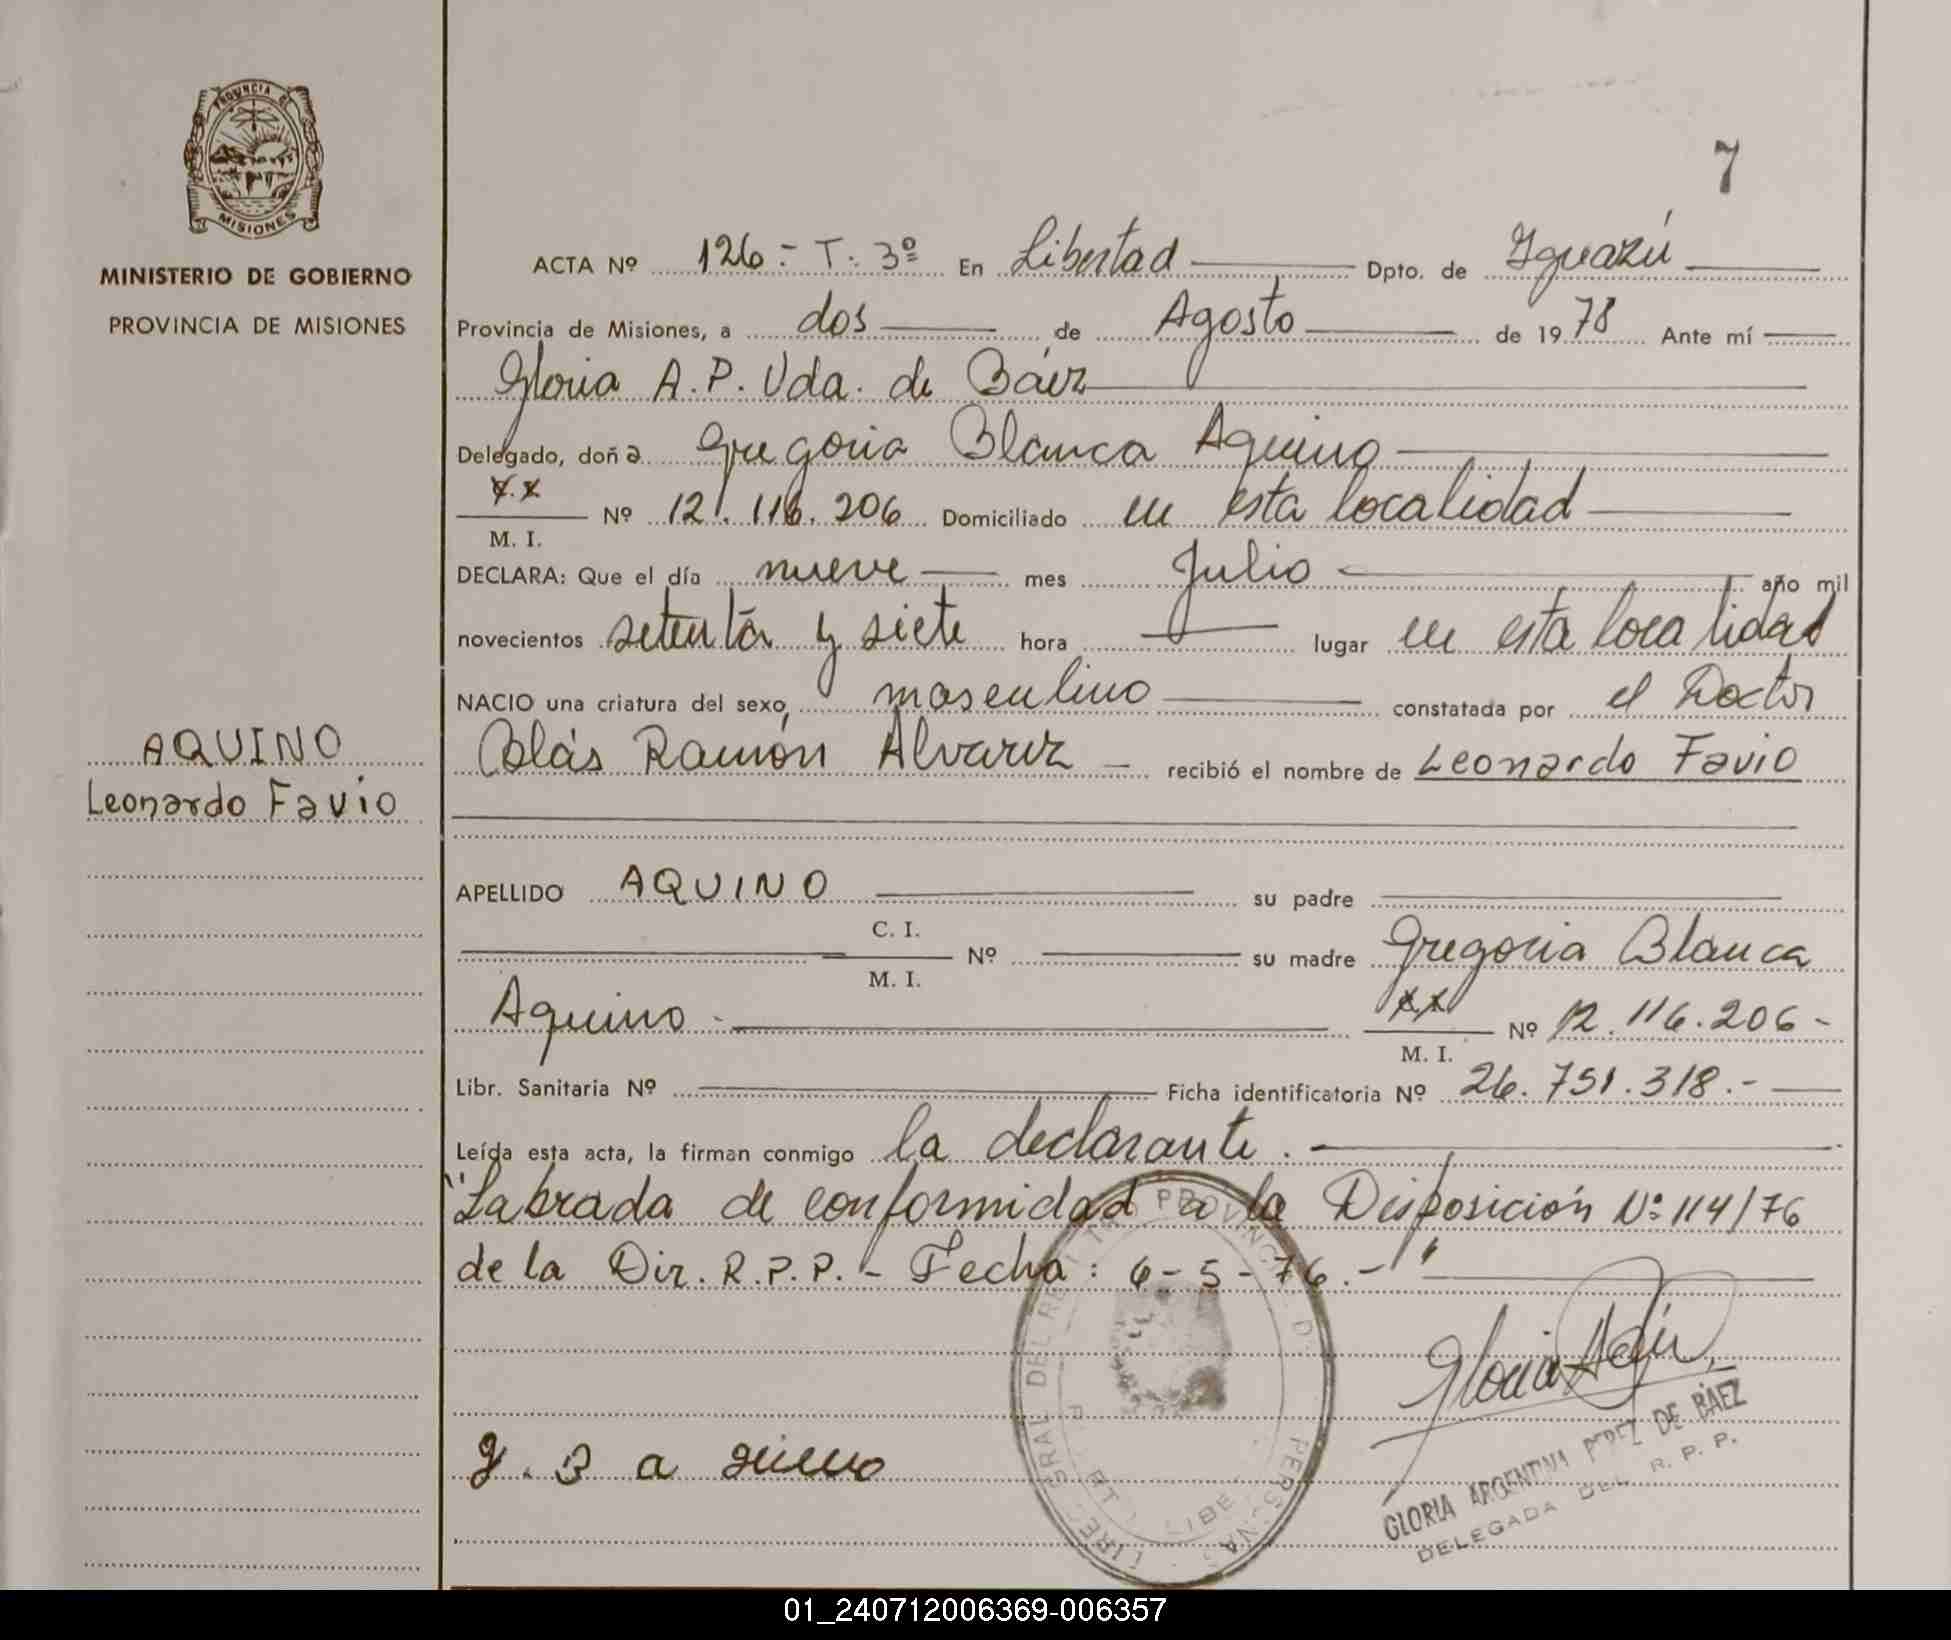 PROVINCIA DE
MISIONES
MINISTERIO DE GOBIERNO
PROVINCIA DE MISIONES
AQUINO
Leonardo Favio
7
ACTA Nº 126.- T. 3º En Libertad Dpto. de Iguazú
Provincia de Misiones, a dos de Agosto de 1978 Ante mí
Gloria A. P. Vda. de Báez
Delegado, doña Gregoria Blanca Aquino
M. I. Nº 12.116.206 Domiciliado en esta localidad
DECLARA: Que el día nueve mes Julio año mil
novecientos setenta y siete hora lugar en esta localidad
NACIO una criatura del sexo, masculino constatada por el Doctor
Blás Ramón Alvarez recibió el nombre de Leonardo Favio
APELLIDO AQUINO su padre
C. I.
M. I. Nº su madre Gregoria Blanca
Aquino.- M. I. Nº 12.116.206-
Libr. Sanitaria Nº Ficha identificatoria Nº 26.751.318.-
Leída esta acta, la firman conmigo la declarante.
"Labrada de conformidad a la Disposición Nº 114/76
de la Dir. R.P.P.- Fecha: 6-5-76.-"
GLORIA ARGENTINA PEREZ DE BÁEZ
DELEGADA DEL R. P. P.
01_240712006369-006357